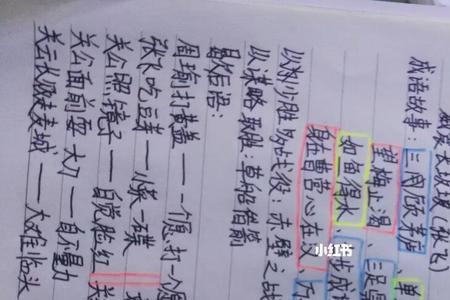 威震长坂坡（张飞）
成语故事：三顾茅庐、单
望梅止渴、三足
如鱼得水、
身在曹营心在汉、
以少胜多战役：赤壁之战
以谋略取胜：草船借箭
歇后语：
周瑜打黄盖——一个愿打一个愿
张飞吃豆芽——小菜一碟
关公照镜子——自觉脸红 关
关公面前耍大刀——自不量力
关云长败走麦城——大难临头
小红书